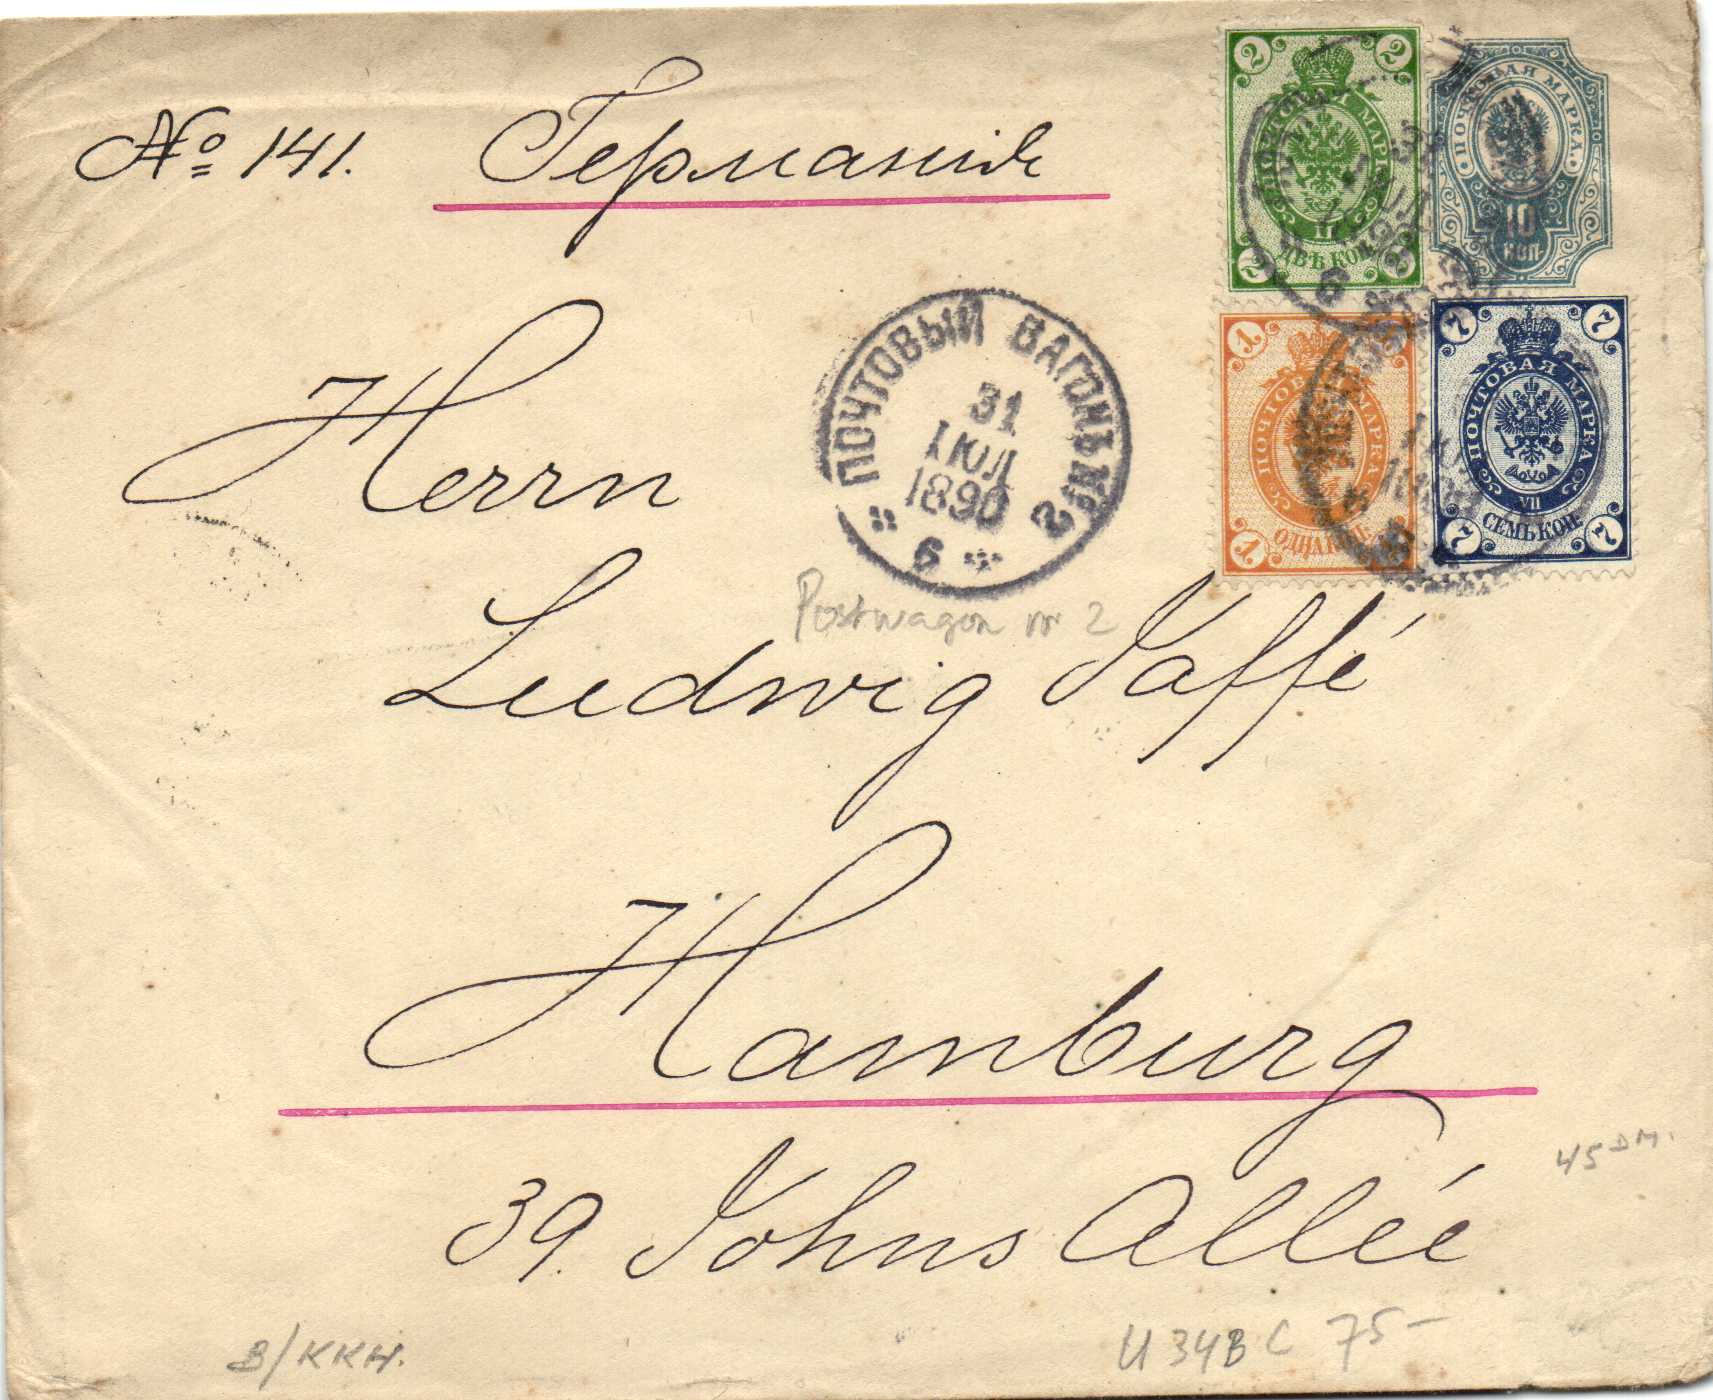 № 141. Германія
2 2
ПОЧТОВАЯ МАРКА
II
ДВѢ КОП.
2 2
ПОЧТОВАЯ МАРКА.
10
КОП.
1
ПОЧТОВАЯ МАРКА
ОДНА КОП.
1 1
7 7
ПОЧТОВАЯ МАРКА
VII
СЕМЬ КОП.
7 7
ПОЧТОВЫЙ ВАГОНЪ № 2
31
ІЮЛ
1890
6
Postwagon nr 2
Herrn
Ludwig Jaffé
Hamburg
39. Johns Allée
45 DM.
B/KKH.
U 34B C 75-